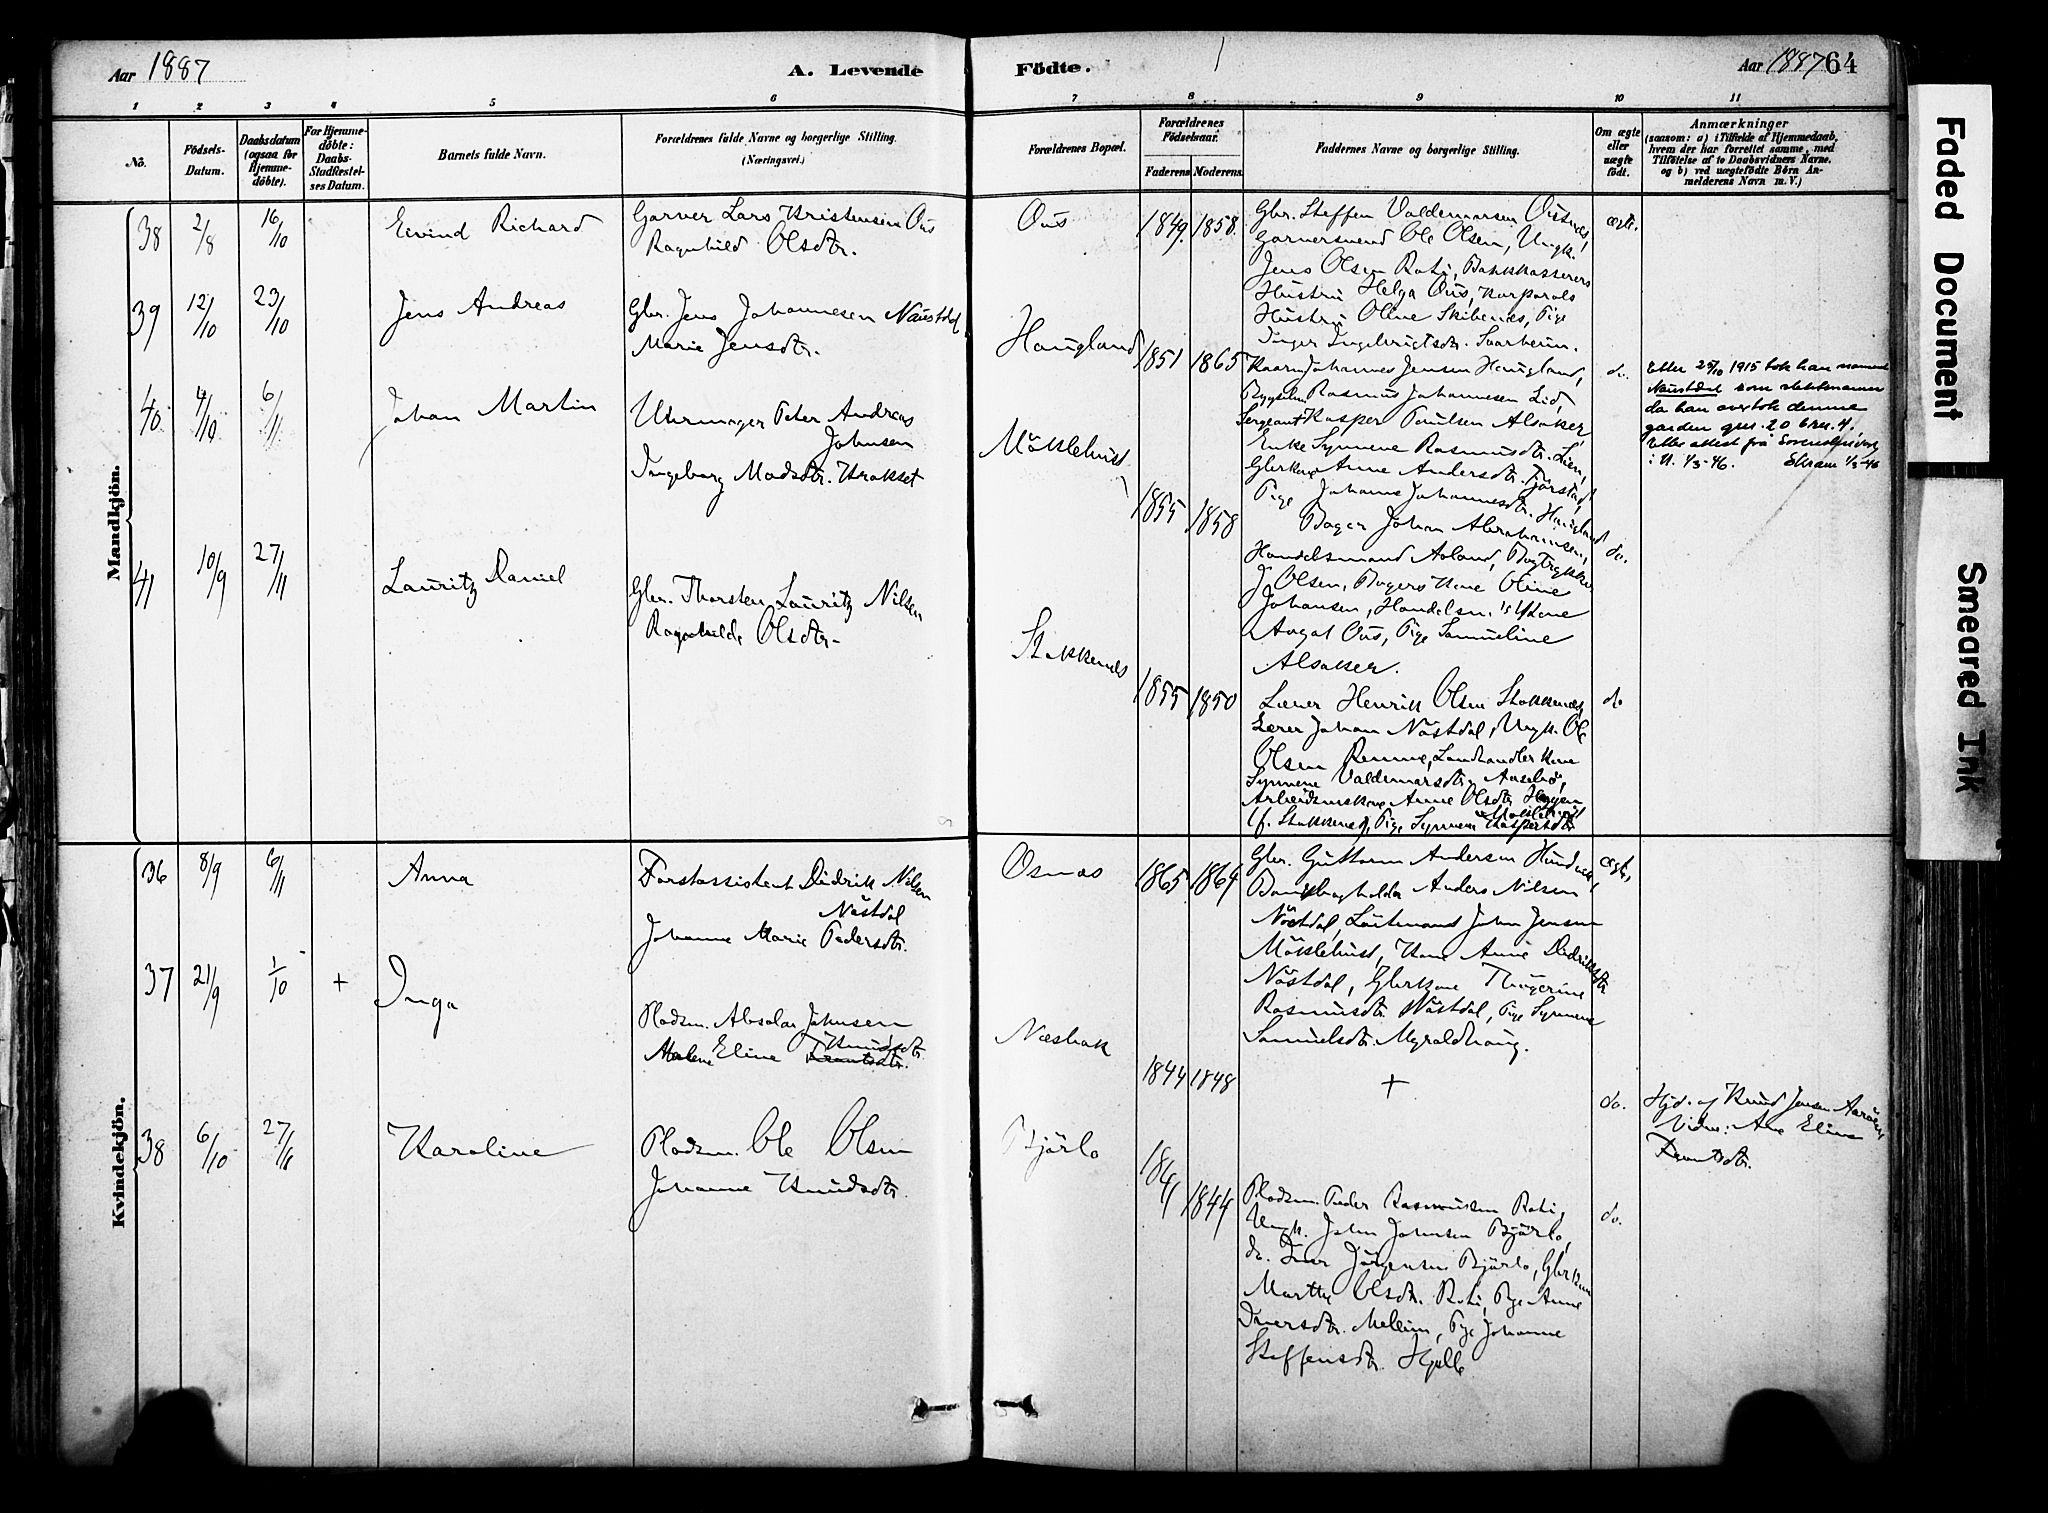 Aar 1887
A. Levende
Födte.
Aar 1887 64
1 2 3 4 5 6 7 8 9 10 11
No.
Födsels-Datum.
Daabsdatum (ogsaa for Hjemme-döbte).
For Hjemme-döbte: Daabs-Stadfæstel-ses Datum.
Barnets fulde Navn.
Forældrenes fulde Navne og borgerlige Stilling. (Næringsvei.)
Forældrenes Bopæl.
Forældrenes Födselsaar.
Faderens Moderens
Faddernes Navne og borgerlige Stilling.
Om ægte eller uægte födt.
Anmærkninger
(saasom: a) i Tilfælde af Hjemmedaab, hvem der har forrettet samme, med Tilföielse af to Daabsvidners Navne. og b) ved uægtefödte Börn An-melderens Navn m. V.)
Mandkjön.
38 2/8 16/10 Eivind Richard
Garver Lars Kristensen Ous
Ragnhild Olsdtr.
Ous 1849. 1858.
Gbr. Steffen Valdemarsen Ousnes,
Garversvend Ole Olsen, Ungk.
Jens Olsen Roti, Bankkasserers
Hustru Helga Ous, Korporals
Hustru Oline Skibenes, Pige
Inger Ingebrigtsdtr. Svarheim.
ægte.
39 12/10 23/10 Jens Andreas
Gbr. Jens Johannesen Naustdal
Marie Jensdtr.
Haugland 1851 1865
Kaarm. Johannes Jensen Haugland,
Rasmus Johannesen Lid,
Sergeant Kasper Paulsen Alsaker
Enke Synneve Rasmusdtr. Lien,
Gbrkone Anne Andersdtr. Fjørstad,
Pige Johanne Johannesdtr. Haugland
do.
Etter 25/10 1915 tok han namnet
Naustdal som slektsnamn
da han overtok denne
garden gnr. 20 brn. 4,
etter attest frå Sorenskrivar
i N. 1/3-46. Skram 1/3-46
40 4/10 6/11 Johan Martin
Uhrmager Peter Andreas
Johnsen
Ingeborg Madsdtr. Krokset
Möklebust 1855 1858
Bager Johan Abrahamsen,
Handelsmand Aaland, Bogtrykker
J. Olsen, Bagers Kone Oline
Johansen, Handelsm.'s Kone
Ous, Pige Samueline
Alsaker.
do.
41 10/9 27/11 Lauritz Daniel
Gbr. Thorsten Lauritz Nilsen
Ragnhilde Olsdtr.
Stokkenes 1855 1850
Lærer Henrik Olsen Stokkenes
Lærer Johan Nöstdal, Ungk. Ole
Olsen Remme, Landhandler Kone
Synneve Valdemarsdtr. Aaselid,
Arbeidsmkone Anne Olsdtr. Hagen
Möklebust
(f. Stokkenes), Pige Synneve Kaspersdtr.
do
Kvindekjön.
36 8/9 6/11 Anna
Forstassistent Didrik Nilsen
Nöstdal
Johanne Marie Pedersdtr.
Osnes 1865 1864
Gbr. Guttorm Andersen Hundeid,
Bankbogholder Anders Nilsen
Nöstdal, Löitnant John Jensen
Möklebust, Kone Anne Didriksdtr
Nöstdal, Gbrkone Thugerine
Rasmusdtr. Nöstdal, Pige Synneve
Samuelsdtr. Myraldhaug.
ægte,
37 21/9 1/10 + Inga
Pladsm. Absalon Johnsen
Knudsdtr.
Malene Eline
Næsbak 1844 1848 + do.
Hjd. af Knud Jensen Aaröen
Vidne: Ane Eline
38 6/10 27/11 Karoline
Pladsm. Ole Olsen
Johanne Knudsdtr.
Bjørlo 1841 1844
Pladsm. Peder Rasmussen Roti,
Ungk. John Johnsen Bjørlo,
do. Iver Jörgensen Bjørlo, Gbrkone
Marthe Olsdtr. Roti, Pige Anne
Iversdtr. Mellem, Pige Johanne
Steffensdtr. Hjelle
do.
Faded Document
Smeared Ink